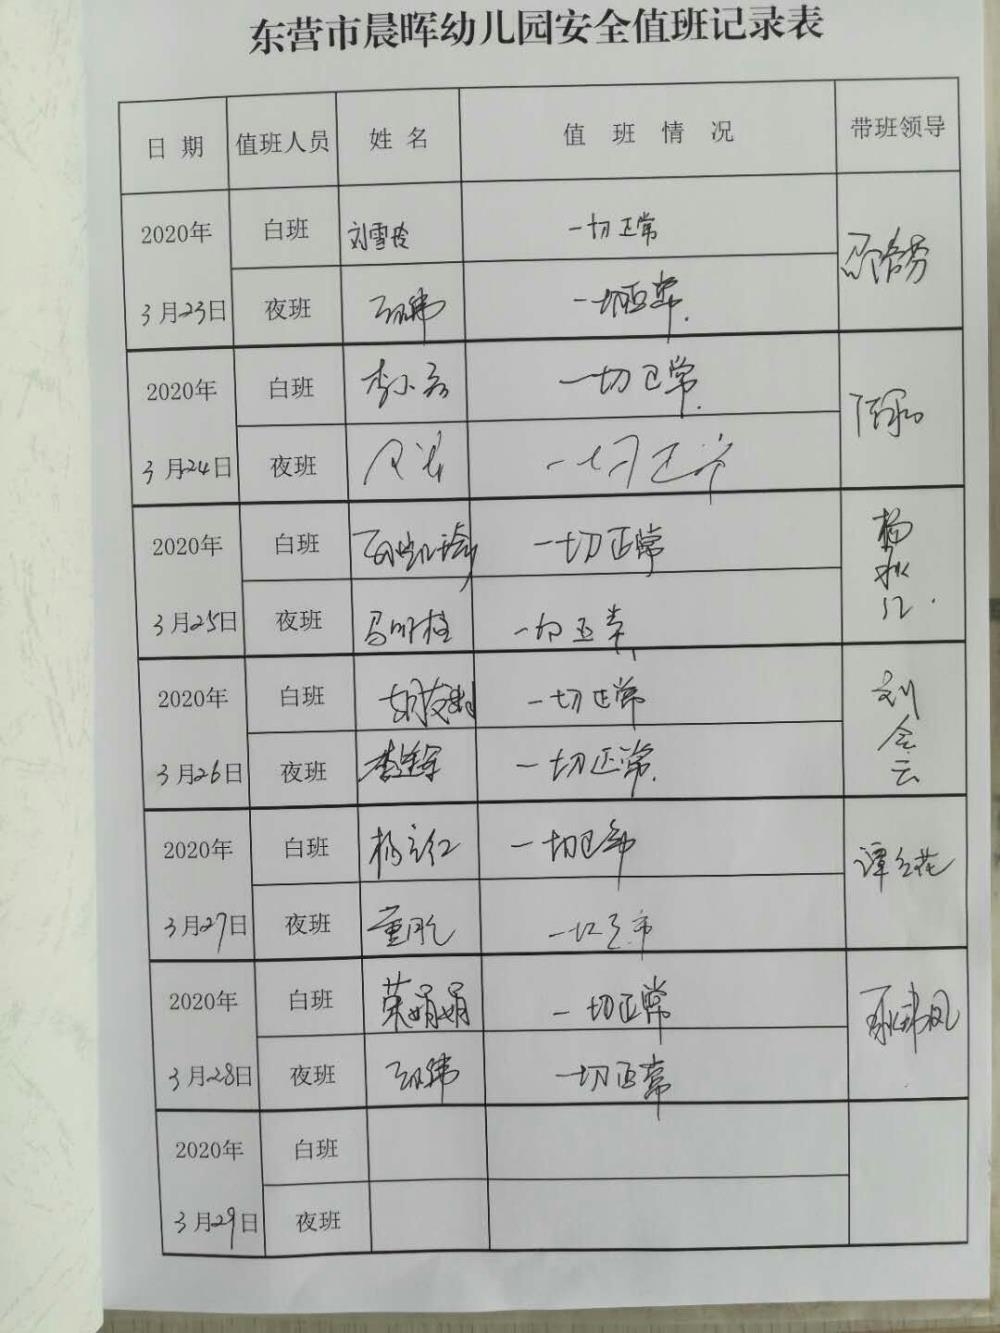 东营市晨晖幼儿园安全值班记录表
日期 值班人员 姓名 值班情况 带班领导
2020年 白班 刘雪玲 一切正常
3月23日 夜班 一切正常.
2020年 白班 一切正常.
3月24日 夜班 一切正常
2020年 白班 一切正常
3月25日 夜班 马明桂 一切正常. 杨秋江.
2020年 白班 一切正常
3月26日 夜班 一切正常. 刘会云
2020年 白班 杨立红 一切正常
3月27日 夜班 一切正常 谭红花
2020年 白班 荣娟娟 一切正常
3月28日 夜班 一切正常
2020年 白班
3月29日 夜班